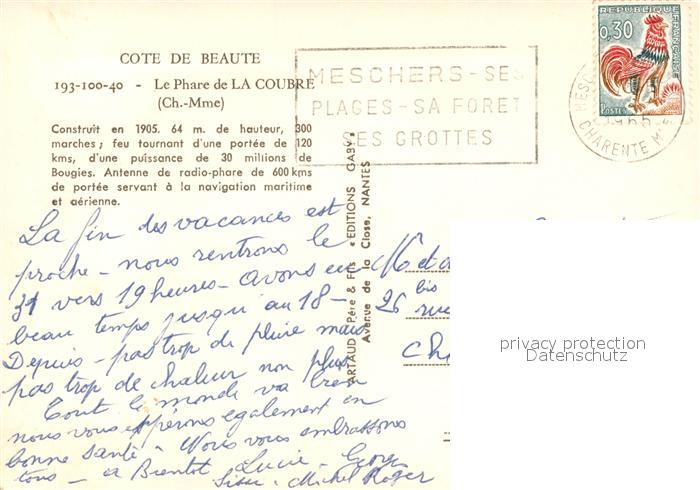 COTE DE BEAUTE
193-100-40 - Le Phare de LA COUBRE
(Ch.-Mme)
Construit en 1905. 64 m. de hauteur, 300
marches; feu tournant d'une portée de 120
kms, d'une puissance de 30 millions de
Bougies. Antenne de radio-phare de 600 kms
de portée servant à la navigation maritime
et aérienne.
MESCHERS-SES
PLAGES-SA FORET
SES GROTTES
REPUBLIQUE FRANÇAISE
0,30
POSTES
MESC
CHARENTE Mme
ARTAUD Père & Fils "EDITIONS GABY"
Avenue de la Close, NANTES
La fin des vacances est
proche - nous rentrons le
31 vers 19 heures - avons eu
beau temps jusqu'au 18 -
Depuis - pas trop de pluie mais
pas trop de chaleur non plus
Tout le monde va bien
nous vous espérons également en
bonne santé - Nous vous embrassons
tous - a Bientot Lucie - Georges
Michel Roger
M et
26 bis rue
privacy protection
Datenschutz